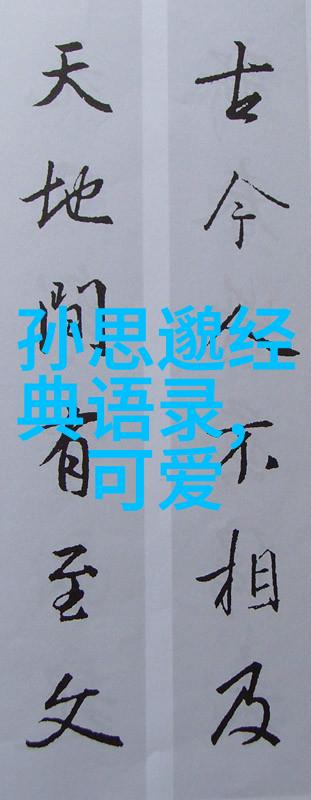 古今人不相及
天地間有至文
孙思邈经
典语录,
可爱